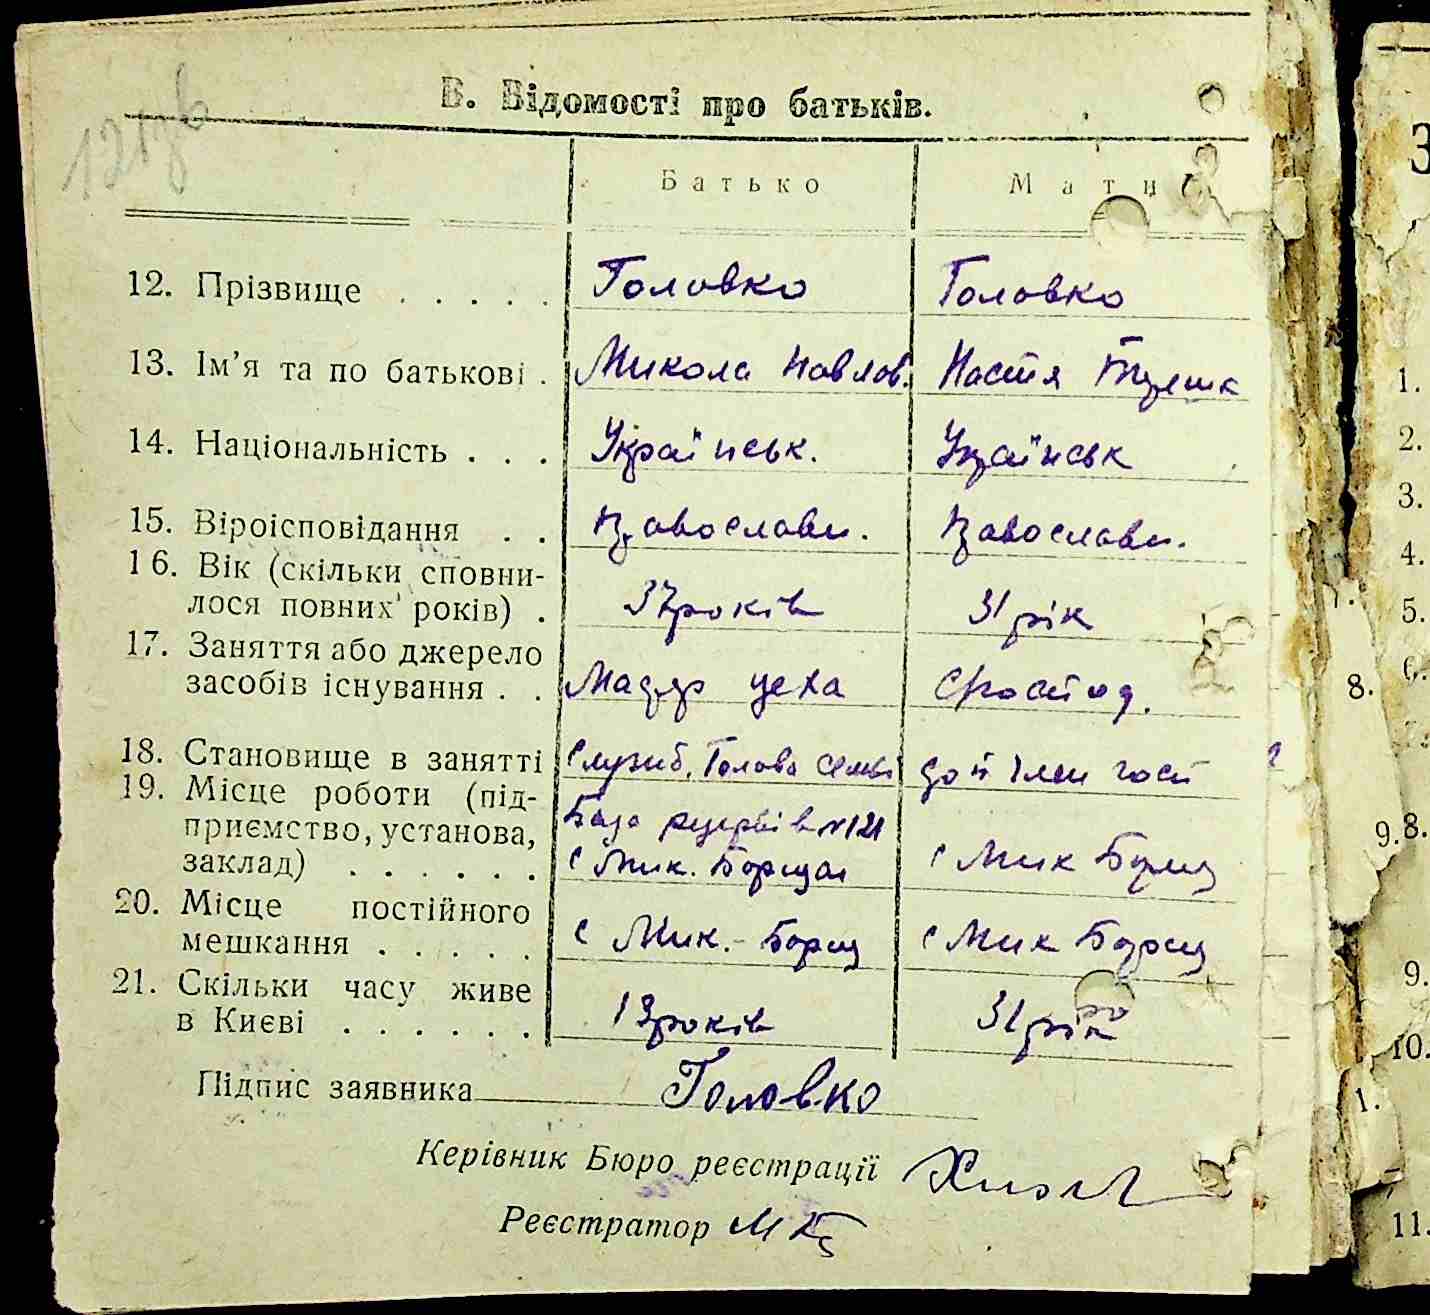 В. Відомості про батьків.
Батько Мати
12. Прізвище . . . . . Головко Головко
13. Ім'я та по батькові . Микола Павлов. Настя
14. Національність . . . Українськ. Українськ
15. Віроісповідання . . Православн. Православн.
16. Вік (скільки сповни-
лося повних років) . 37 років 31 рік
17. Заняття або джерело
засобів існування . . цеха
18. Становище в занятті Служб. Голова семьі член
19. Місце роботи (під-
приємство, установа, База резервів №121
заклад) . . . . . . с Мик. Борщаг с Мик Борщ
20. Місце постійного
мешкання . . . . . с Мик. - Борщ с Мик Борщ
21. Скільки часу живе
в Києві . . . . . . 13 років 31 рік
Підпис заявника Головко
Керівник Бюро реєстрації
Реєстратор
3
1.
2.
3.
4.
5.
6.
8.
9.
8.
9.
10.
1.
11.